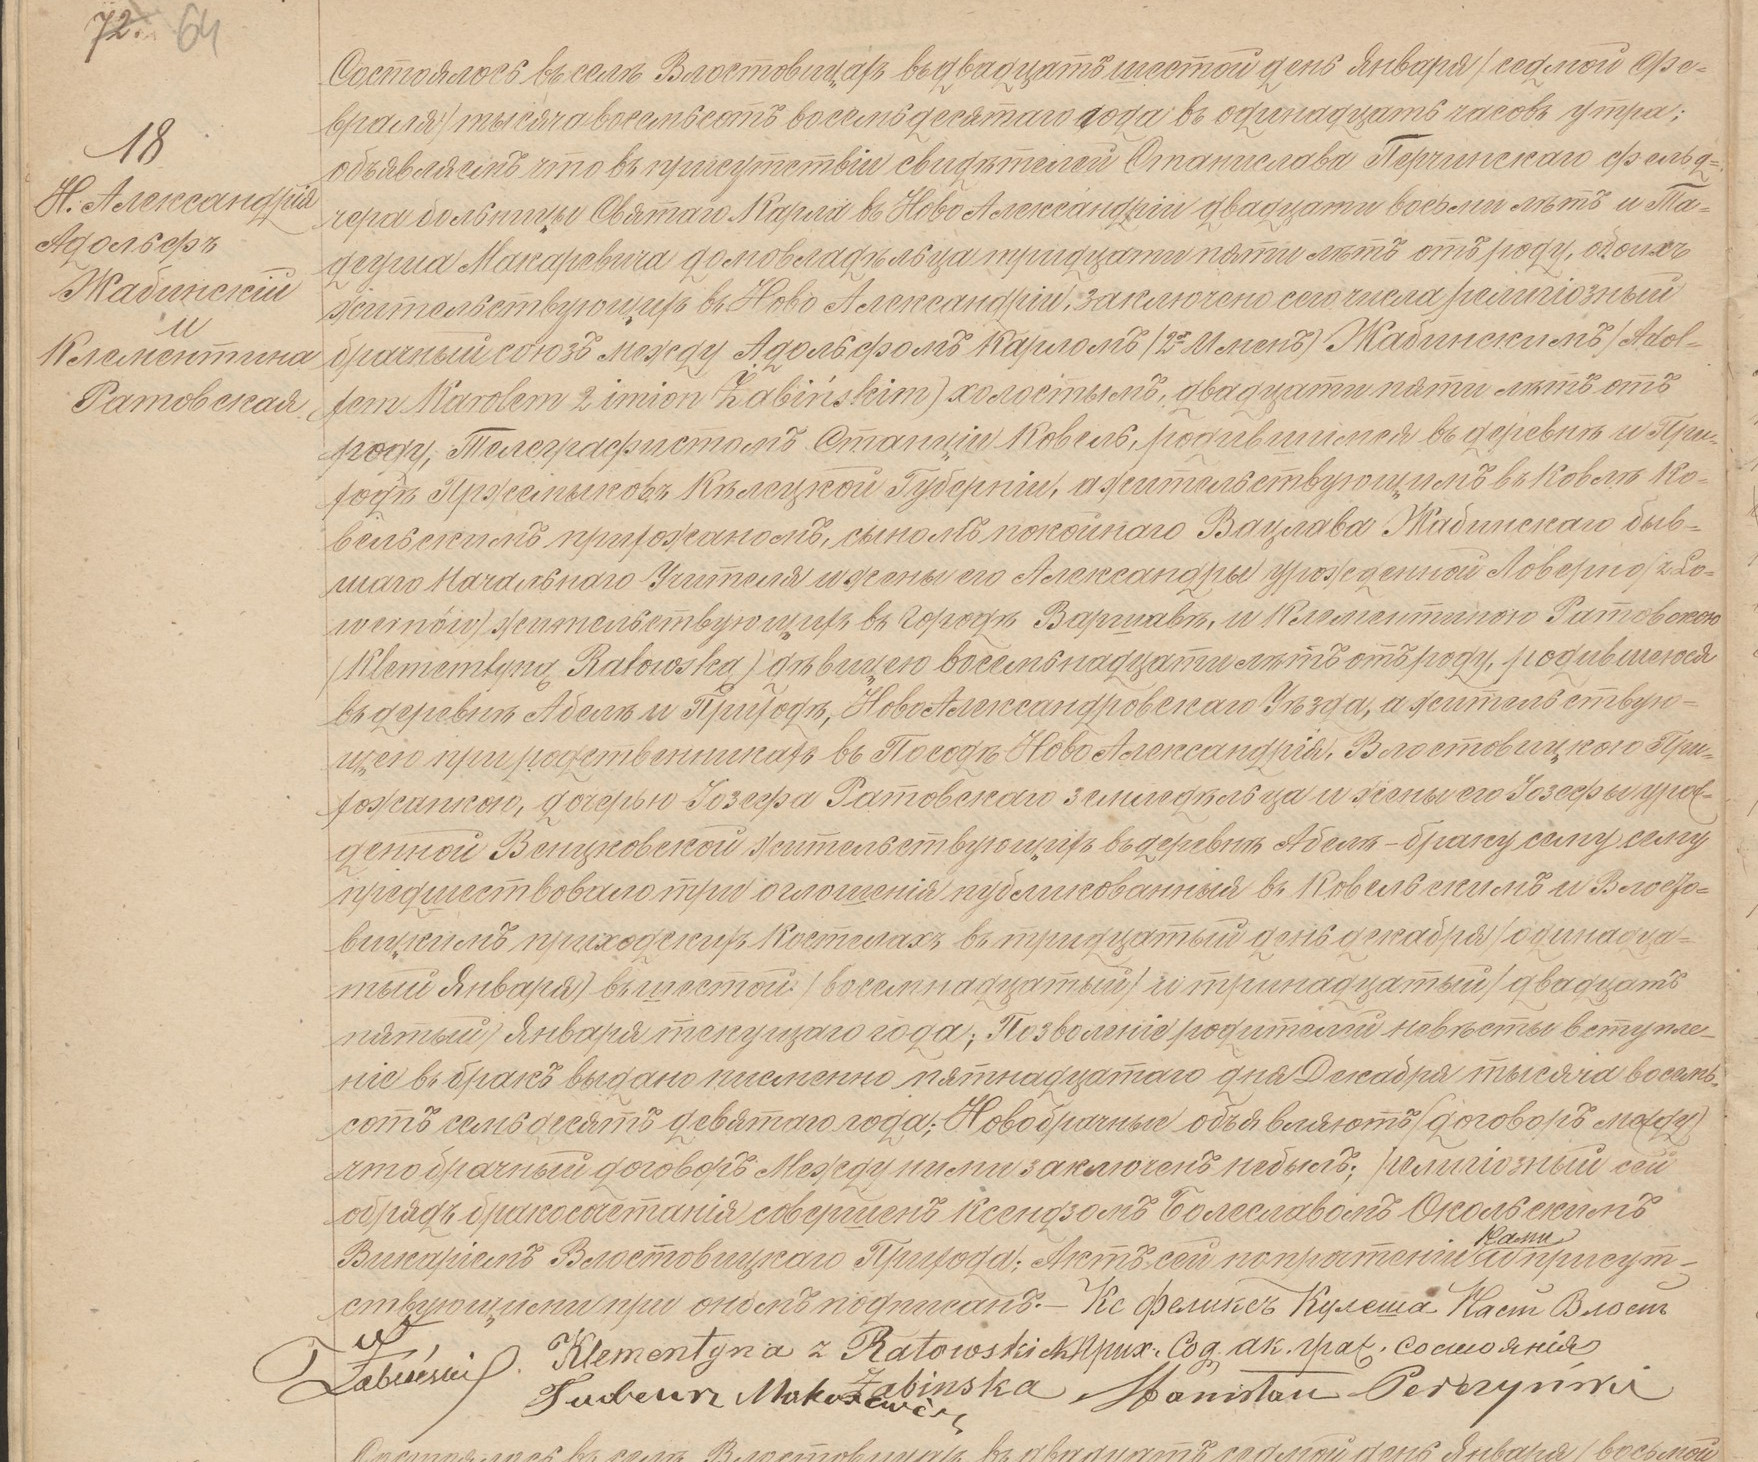 72. 64
18
Н. Александрія
Адольфъ
Жабинскій
и
Клементина
Ратовская
Состоялось въ селѣ Влостовицахъ въ двадцать шестой день Января / седмой Фе-
враля / тысяча восемьсотъ восемьдесятаго года въ одинадцать часовъ утра;
объявляемъ что въ присутствіи свидѣтелей Станислава Перчинскаго фельд-
чера больницы Святаго Карла въ Ново Александріи двадцати восьми лѣтъ и Та-
деуша Макаревича домовладѣльца тридцати пяти лѣтъ отъ роду, обоихъ
жительствующихъ въ Ново Александріи, заключено сего числа религіозный
брачный союзъ между Адольфомъ Карломъ /2хъ Именъ/ Жабинскимъ / Adol-
fem Karolem 2 imion Żabińskim) холостымъ, двадцати пяти лѣтъ отъ
роду, Телеграфистомъ Станціи Ковель, родившимся въ деревнѣ и При-
ходѣ Кѣлецкой Губерніи, а жительствующимъ въ Ковлѣ Ко-
вельскимъ прихожаномъ, сыномъ покойнаго Вацлава Жабинскаго быв-
шаго Начальнаго Учителя и жены его Александры урожденной Ловерно / z Lo-
wernów) жительствующихъ въ городѣ Варшавѣ, и Клементиною Ратовскою
(Klementyną Ratowską) дѣвицею восемьнадцати лѣтъ отъ роду, родившеюся
въ деревнѣ Абелѣ и Приходѣ, НовоАлександровскаго Уѣзда, а жительствую-
щею при родственникахъ въ Посадѣ Ново Александрія, Влостовицкою При-
хожанкою, дочерью Іозефа Ратовскаго земледѣльца и жены его Іозефы урож-
денной Венцковской жительствующихъ въ деревнѣ Абелѣ – браку сему сему
предшествовало три оглошенія публикованныя въ Ковельскимъ и Влосто-
вицкимъ приходскихъ Костелахъ въ тридцатый день декабря / одинадца-
тый Января) въ шестой / восемнадцатый / и тринадцатый / двадцать
пятый / Января текущаго года; Позволеніе родителей невѣсты вступле-
ніе въ бракъ выдано писменно пятнадцатаго дня Декабря тысяча восемь-
сотъ семьдесятъ девятаго года; Новобрачные объявляютъ (договоръ между)
что брачный договоръ Между ними заключенъ небылъ; религіозный сей
обрядъ бракосочетанія совершенъ Ксендзомъ Болеславомъ Окольскимъ
Викаріемъ Влостовицкаго Прихода; Актъ сей по прочтеніи Нами присут-
ствующими при ономъ подписанъ. – Кс Феликсъ Кулеша Наст Влост
Прих. Сод. ак. граж. состоянія
Żabiński
Klementyna z Ratowskich
Żabinska
Tadeusz Makarewicz
Stanisław Perczyński
Состоялось въ селѣ Влостовицахъ въ двадцать седмой день Января / восьмой